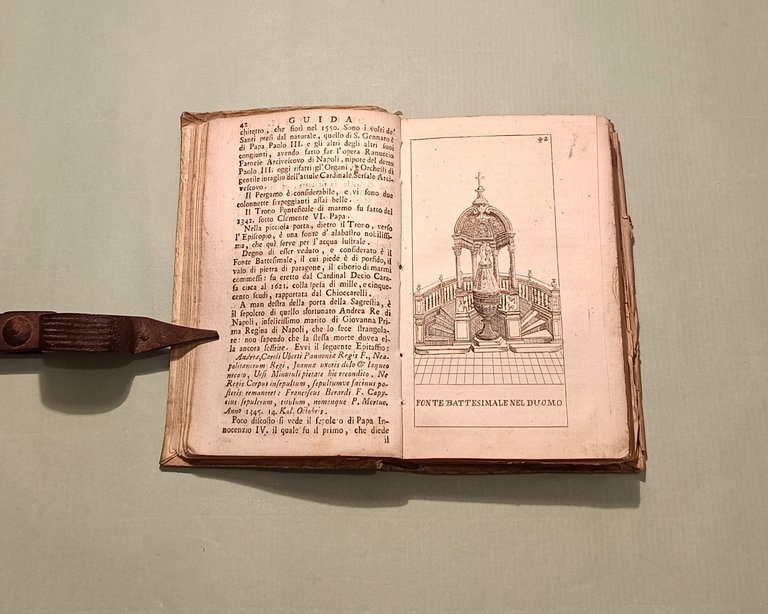 42
GUIDA
chitetto, che fiorì nel 1550. Sono i volti de'
Santi presi dal naturale, quello di S. Gennaro è
di Papa Paolo III. e gli altri degli altri suoi
congiunti, avendo fatto far l'opera Ranuccio
Farnese Arcivescovo di Napoli, nipote del detto
Paolo III. oggi rifatti gl'Organi, e Orchelli di
gentile intaglio dell'attuale Cardinale Sersale Arci-
vescovo.
Il Pergamo è considerabile, e vi sono due
colonnette serpeggianti assai belle.
Il Trono Pontificale di marmo fu fatto del
1342. sotto Clemente VI. Papa.
Nella picciola porta, dietro il Trono, verso
l'Episcopio, è una fonte d'alabastro nobilissi-
ma, che qui serve per l'acqua lustrale.
Degno di esser veduto, e considerato è il
Fonte Battesimale, il cui piede è di porfido, il
vaso di pietra di paragone, il ciborio di marmi
commessi: fu eretto dal Cardinal Decio Cara-
fa circa al 1621. colla spesa di mille, e cinque-
cento scudi, rapportata dal Chioccarelli.
A man destra della porta della Sagrestia, è
il sepolcro di quello sfortunato Andrea Re di
Napoli, infelicissimo marito di Giovanna Pri-
ma Regina di Napoli, che lo fece strangola-
re: non sapendo che la stessa morte dovea el-
la ancora soffrire. Evvi il seguente Epitaffio:
Andreæ, Caroli Uberti Pannoniæ Regis F., Nea-
politanorum Regi, Joannæ uxoris dolo & laqueo
necato, Ursi Minutuli pietate hic recondito. Ne
Regis Corpus insepultum, sepultumve facinus po-
steris remaneret: Franciscus Berardi F. Capy-
cius sepulcrum, titulum, nomenque P. Mortuo.
Anno 1345. 14. Kal. Octobris.
Poco discosto si vede il sepolcro di Papa In-
nocenzio IV. il quale fu il primo, che diede
il
42
FONTE BATTESIMALE NEL DUOMO